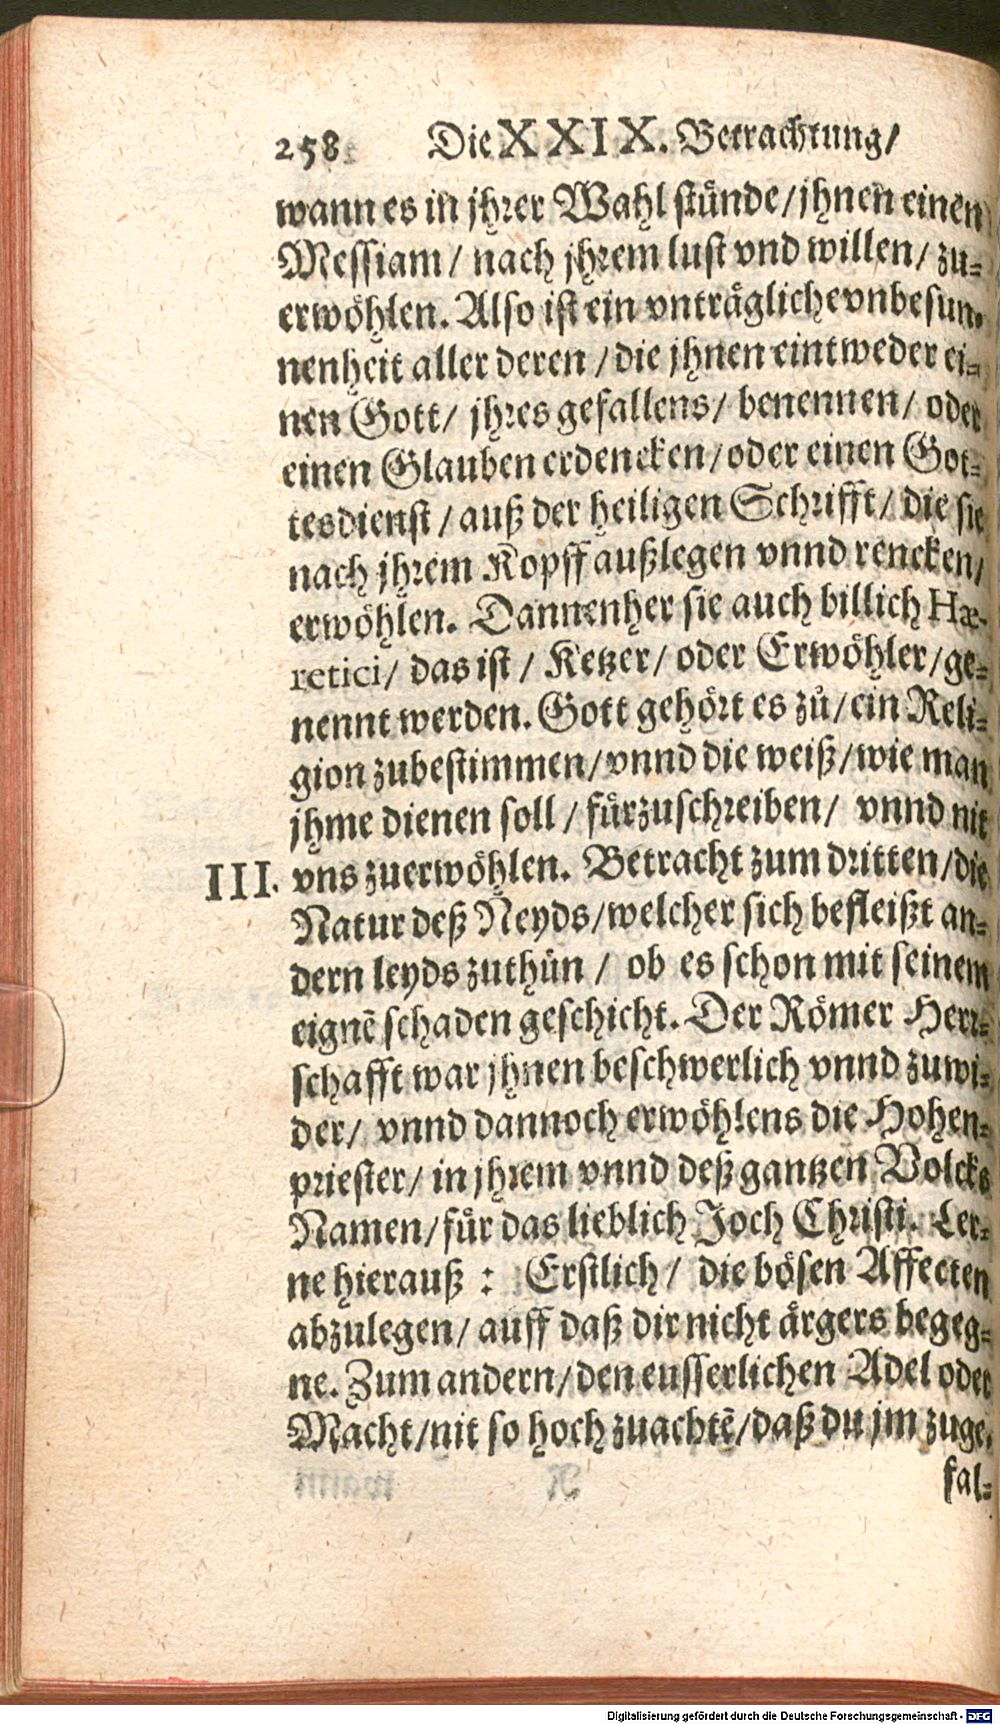 258 Die XXIX. Betrachtung/
wann es in jhrer Wahl stünde/jhnen einen
Messiam/ nach jhrem lust vnd willen/ zu-
erwöhlen. Also ist ein vnträgliche vnbesun-
nenheit aller deren /die jhnen eintweder ei-
nen Gott/ jhres gefallens/ benennen/ oder
einen Glauben erdencken/oder einen Got-
tesdienst/auß der heiligen Schrifft/ die sie
nach jhrem Kopff außlegen vnnd rencken/
erwöhlen. Dannenher sie auch billich Hæ-
retici/ das ist / Ketzer/ oder Erwöhler/ge-
nennt werden. Gott gehört es zů/ein Reli-
gion zubestimmen/vnnd die weiß/wie man
jhme dienen soll / fürzuschreiben/ vnnd nit
III. vns zuerwöhlen. Betracht zum dritten/die
Natur deß Neyds/welcher sich befleißt an-
dern leyds zuthůn / ob es schon mit seinem
eignē schaden geschicht. Der Römer Herr-
schafft war jhnen beschwerlich vnnd zuwi-
der/ vnnd dannoch erwöhlens die Hohen-
priester/ in jhrem vnnd deß gantzen Volcks
Namen/für das lieblich Joch Christi. Ler-
ne hierauß : Erstlich/ die bösen Affecten
abzulegen/ auff daß dir nicht ärgers begeg-
ne. Zum andern/den eusserlichen Adel oder
Macht/nit so hoch zuachtē/daß du jm zuge-
fal-
Digitalisierung gefördert durch die Deutsche Forschungsgemeinschaft - DFG